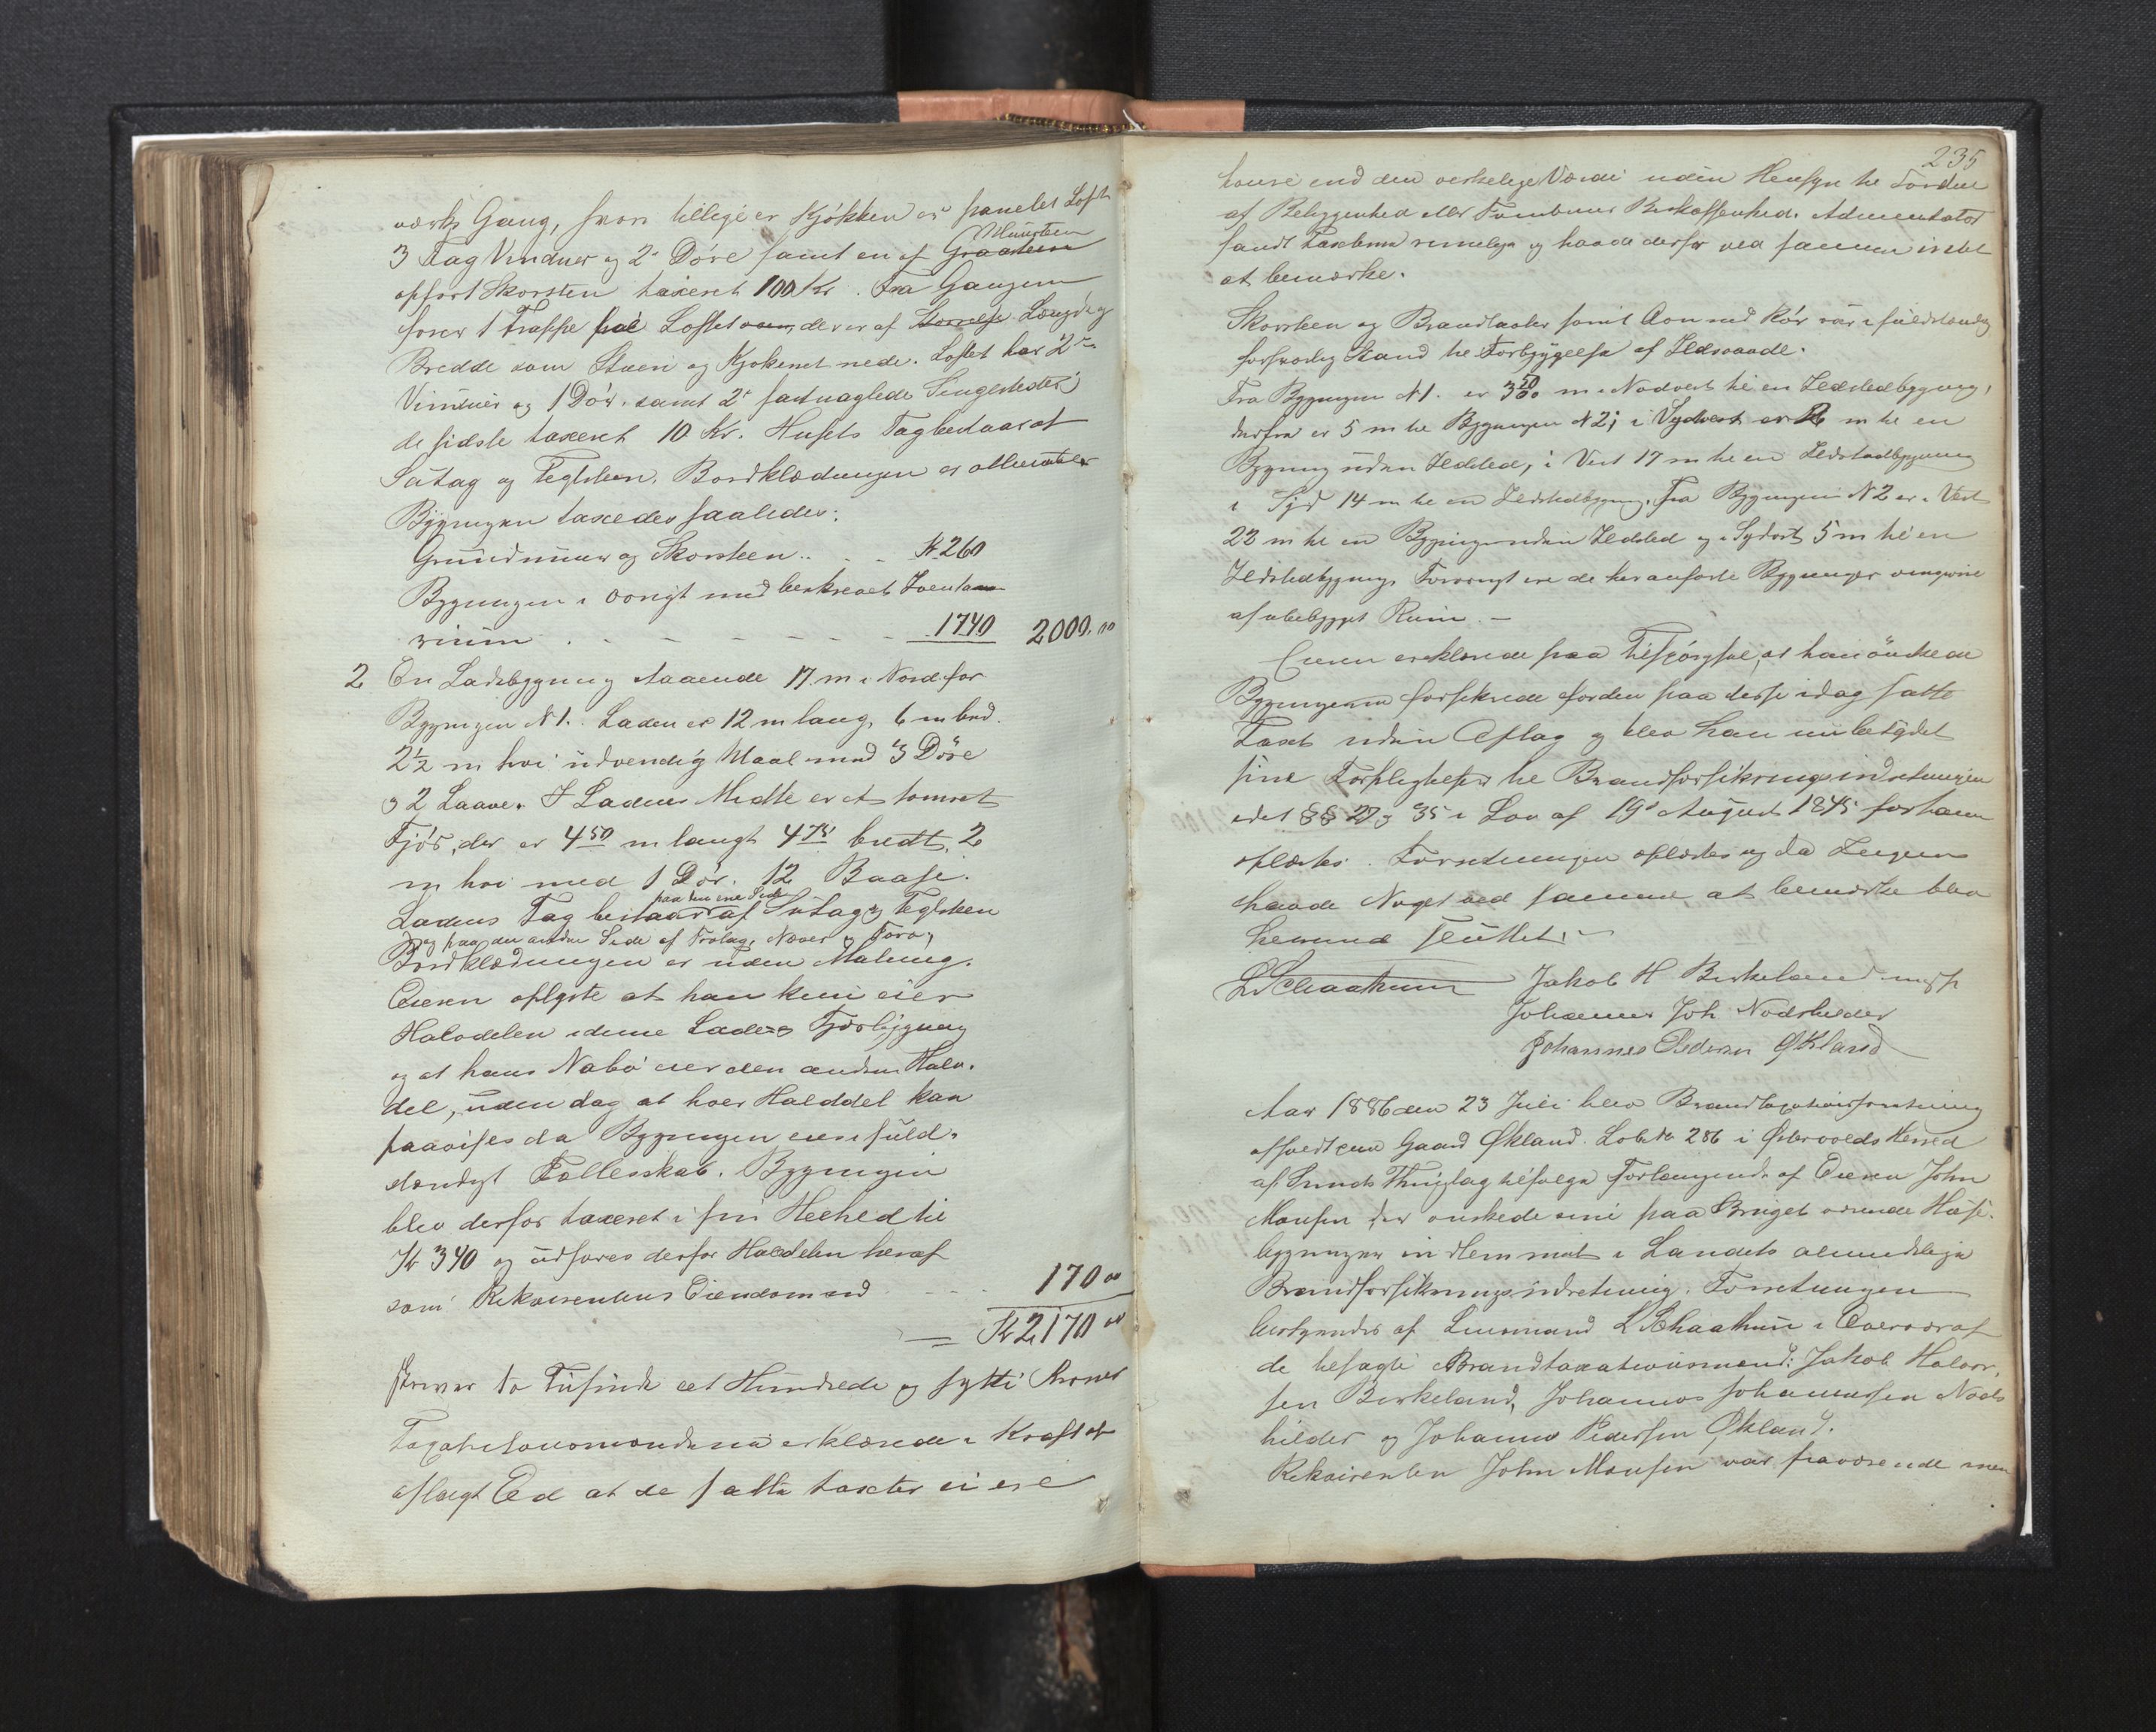 værks Gang, hvori tillige er Kjøkken er panelet Loft
3 Fag Vinduer og 2 Døre samt en af Graasteen Muursteen
opført Skorsten taxeret 100 Kr. Fra Gangen
fører 1 Trappe paa Loftet der er af Størrelse Længde og
Bredde som Stuen og Kjøkenet nede. Loftet har 2
Vinduer og 1 Dør samt 2 fastnaglede Sengesteder
de sidste taxeret 10 Kr. Husets Tag bestaar af
Sutag og Teglsteen. Bordklædningen er
Bygningen taxeredes saaledes:
Grundmuur og Skorsteen Kr 260
Bygningen i øvrigt med beskrevet Inventa
rium 1740 2000.00
2 En Ladebygning staaende 17 m i Nord for
Bygningen N 1. Laden er 12 m lang, 6 m bred
2 1/2 m høi udvendig Maal med 3 Døre
og 2 Laaver. I Ladens Midte er et tømret
Fjøs, der er 4 50 m langt 4 75 bredt, 2
m høi med 1 Dør. 12 Baase.
Ladens Tag bestaar paa den ene Side af Sutag og Teglsteen
og paa den anden Side af Trotag, Næver og Torv,
Bordklædningen er uden Maling.
Eieren oplyste at han kun eier
Halvdelen i denne Lade og Fjøsbygning
og at hans Nabo eier den anden Halv-
del, uden dog at hver Halvdel kan
paavises da Bygningen eies i fuld-
stændigt Fællesskab. Bygningen
blev derfor taxeret i sin Heelhed til
Kr 340 og udføres derfor Halvdelen heraf
som Rekvirentens Eiendom med 170 00
Kr 2170 00
skriver to Tusinde eet Hundrede og sytti Kroner
Taxationsmændene erklærede i Kraft af
aflagt Ed at de satte taxter ei ere
235
høiere end den verkelige Værdi uden Hensyn til Fordeel
af Beliggenhed eller Tomtens Beskaffenhed. Administrator
fandt Taxterne rimelige og havde derfor ved samme intet
at bemærke.
Skorsteen og Brandtavler samt Ovn med Rør var i fuldstændig
forsvarlig Stand til Forbyggelse af Ildsvaade.
Fra Bygningen N 1. er 3 50 m i Nodvest til en Ildstedbygning,
derfra er 5 m til Bygningen N 2; i Sydvest er m til en
Bygning uden Ildsted, i Vest 17 m til en Ildstedbygning
i Syd 14 m til en Ildstedbygning. Fra Bygningen N 2 er i Vest
22 m til en Bygning uden Ildsted og i Sydost 5 m til en
Ildstedbygning. Forøvrigt ere de her anførte Bygninger omgivne
af ubebygget Rum. –
Eieren erklærede paa Tilspørgsel, at han ønskede
Bygningerne forsikrede for den paa desse idag satte
Taxt uden Afslag og blev han nu betydet
sine Forpligtelser til Brandforsikringsindretningen
idet §§ 27 og 35 i Lov af 19 August 1845 for ham
oplæstes. Forretningen oplæstes og da Ingen
havde Noget ved samme at bemærke blev
hermed sluttet. –
L Schaathun Jakob H Birkeland
Johannes Joh Nodshilder
Johannes Pedersen Økland
Aar 1886 den 23 Juli blev Brandtaxationsforretning
afholdt paa Gaard Økland Løbe No 286 i Østervolds Herred
af Sunds Thinglag ifølge Forlangende af Eieren John
Monsen der ønskede sine paa Bruget værende Huus-
bygninger indlemmet i Landets almindelige
Brandforsikringsindretning. Forretningen
bestyredes af Lensmand L Schaathun i Overvær af
de besagte Brandtaxationsmænd: Jakob Halvor-
sen Birkeland, Johannes Johannessen Nods
hilder og Johannes Pedersen Økland.
Rekvirenten John Monsen var fraværende men